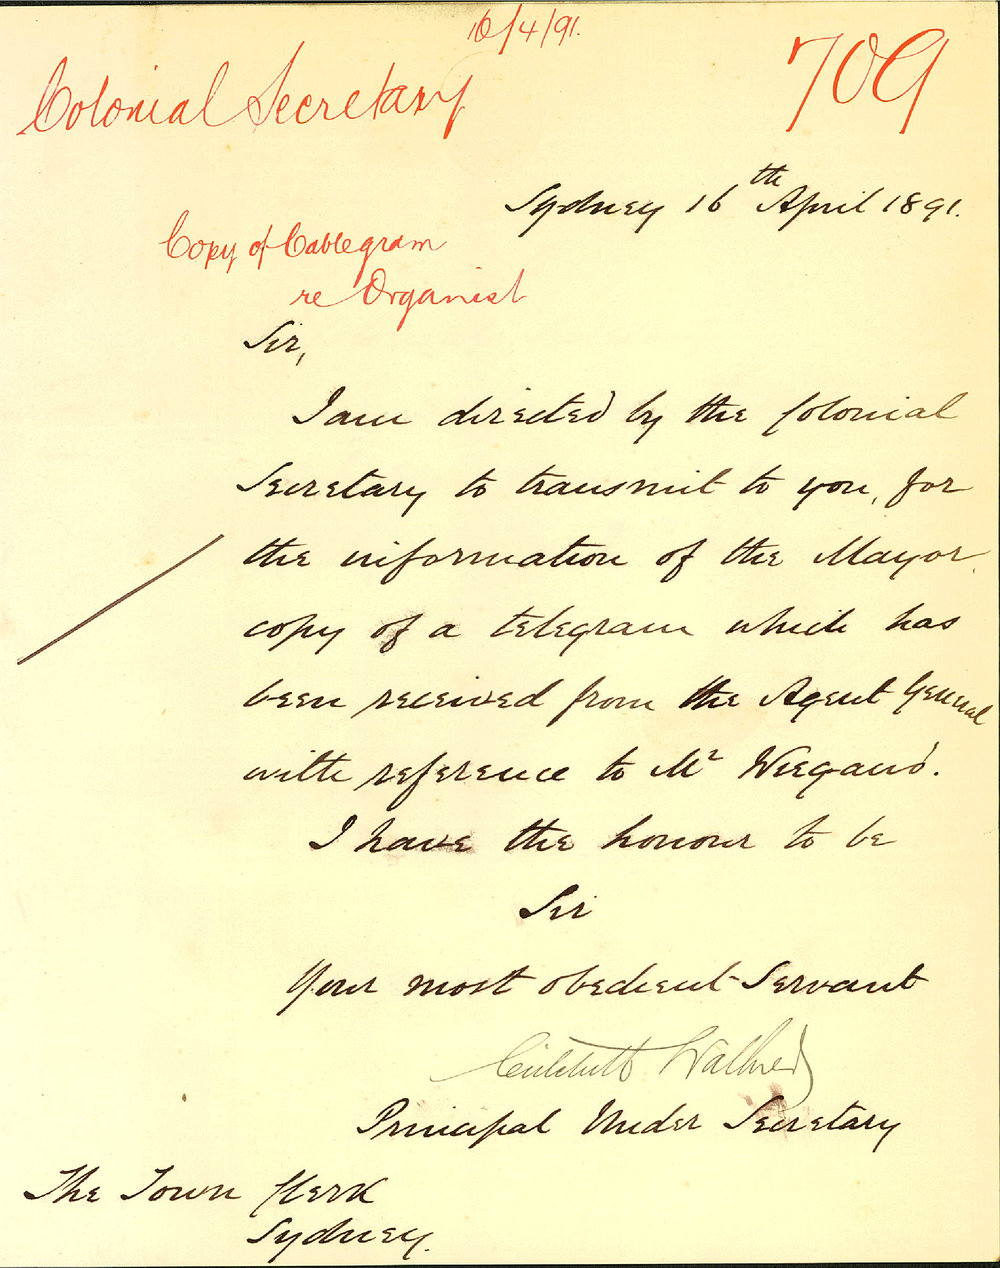 16/4/91.
Colonial Secretary
709
Sydney 16th April 1891.
Copy of Cablegram
re Organist
Sir,
I am directed by the Colonial
Secretary to transmit to you, for
the information of the Mayor,
copy of a telegram which has
been received from the Agent General
with reference to Mr Wiegand.
I have the honour to be
Sir
Your most obedient Servant
Critchett Walker
Principal Under Secretary
The Town Clerk
Sydney.